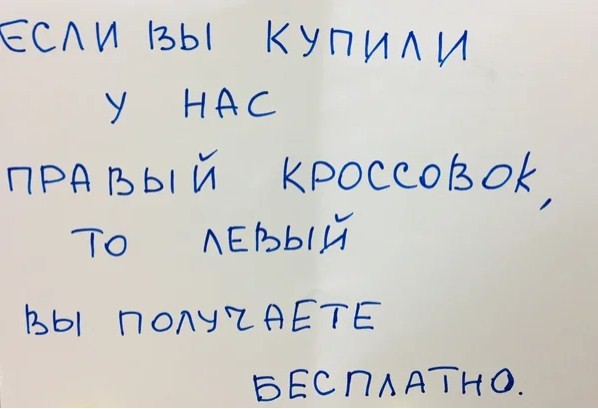 ЕСЛИ ВЫ КУПИЛИ
У НАС
ПРАВЫЙ КРОССОВОК,
ТО ЛЕВЫЙ
ВЫ ПОЛУЧАЕТЕ
БЕСПЛАТНО.